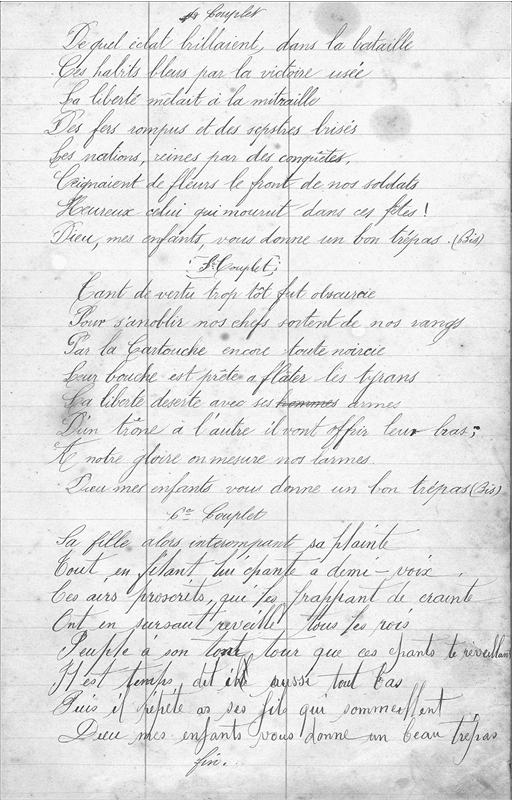 4e Couplet
De quel éclat brillaient, dans la bataille
Ces habits bleus par la victoire usée
La liberté mêlait à la mitraille
Des fers rompus et des sepstres brisés
Les nations, reines par des conquêtes,
Ceignaient de fleurs le front de nos soldats
Heureux celui qui mourut dans ces fêtes!
Dieu, mes enfants, vous donne un bon trépas. (Bis)
5e Couplet
Tant de vertu trop tôt fut obscurcie
Pour s'anoblir nos chefs sortent de nos rangs
Par la Cartouche encore toute noircie
Leur bouche est prête a flâter les tyrans
La liberté deserte avec ses hommes armes
D'un trône à l'autre il vont offrir leur bras;
A notre gloire on mesure nos larmes.
Dieu mes enfants vous donne un bon trépas (Bis)
6e Couplet
Sa fille alors interompant sa plainte
Tout en filant lui chante a demi-voix
Ces airs proscrits, que les frappant de crainte
Ont en sursaut reveillé tous les rois
Peuple à son tour que ces chants te réveillent
Il est temps, dit il aussi tout bas
Puis il répète as ses fils qui sommeillent
Dieu mes enfants vous donne un beau trépas
fin.